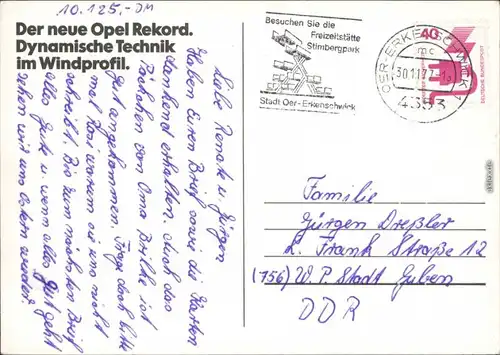 10.125,-DM
Der neue Opel Rekord.
Dynamische Technik
im Windprofil.
Besuchen Sie die
Freizeitstätte
Stimbergpark
Stadt Oer-Erkenschwick
OER-ERKENSCHWICK 1
mc
30.11.77-
4353
40
DEUTSCHE BUNDESPOST
Liebe Renate u. Jürgen
Haben Euren Brief sowie die Karten
dankend erhalten. Auch das
Päckchen von Oma ist
gut angekommen. Frage doch bitte
mal warum sie uns nicht
schreibt. Bis zum nächsten Brief
alles Gute u. wenn alles gut geht
sehen wir uns Ostern wieder.
Familie
Jürgen Dreßler
L. Frank Straße 12
(756) W. P. Stadt Guben
DDR